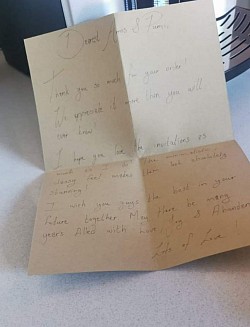 Dearest Ames & Fumi,
Thank you so much for your order!
We appreciate it more than you will
ever know!
I hope you love the invitations as
much as
feel makes them look absolutely
stunning
I wish you guys the best in your
future together. May there be many
years filled with love, Joy & Abundance
Lots of Love